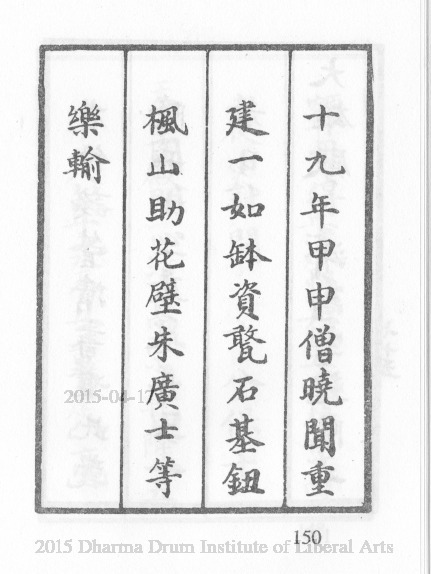 十九年甲申僧曉聞重
建一如缽資甃石基鈕
楓山助花壁朱廣士等
樂輸
2015-04-17
150
2015 Dharma Drum Institute of Liberal Arts